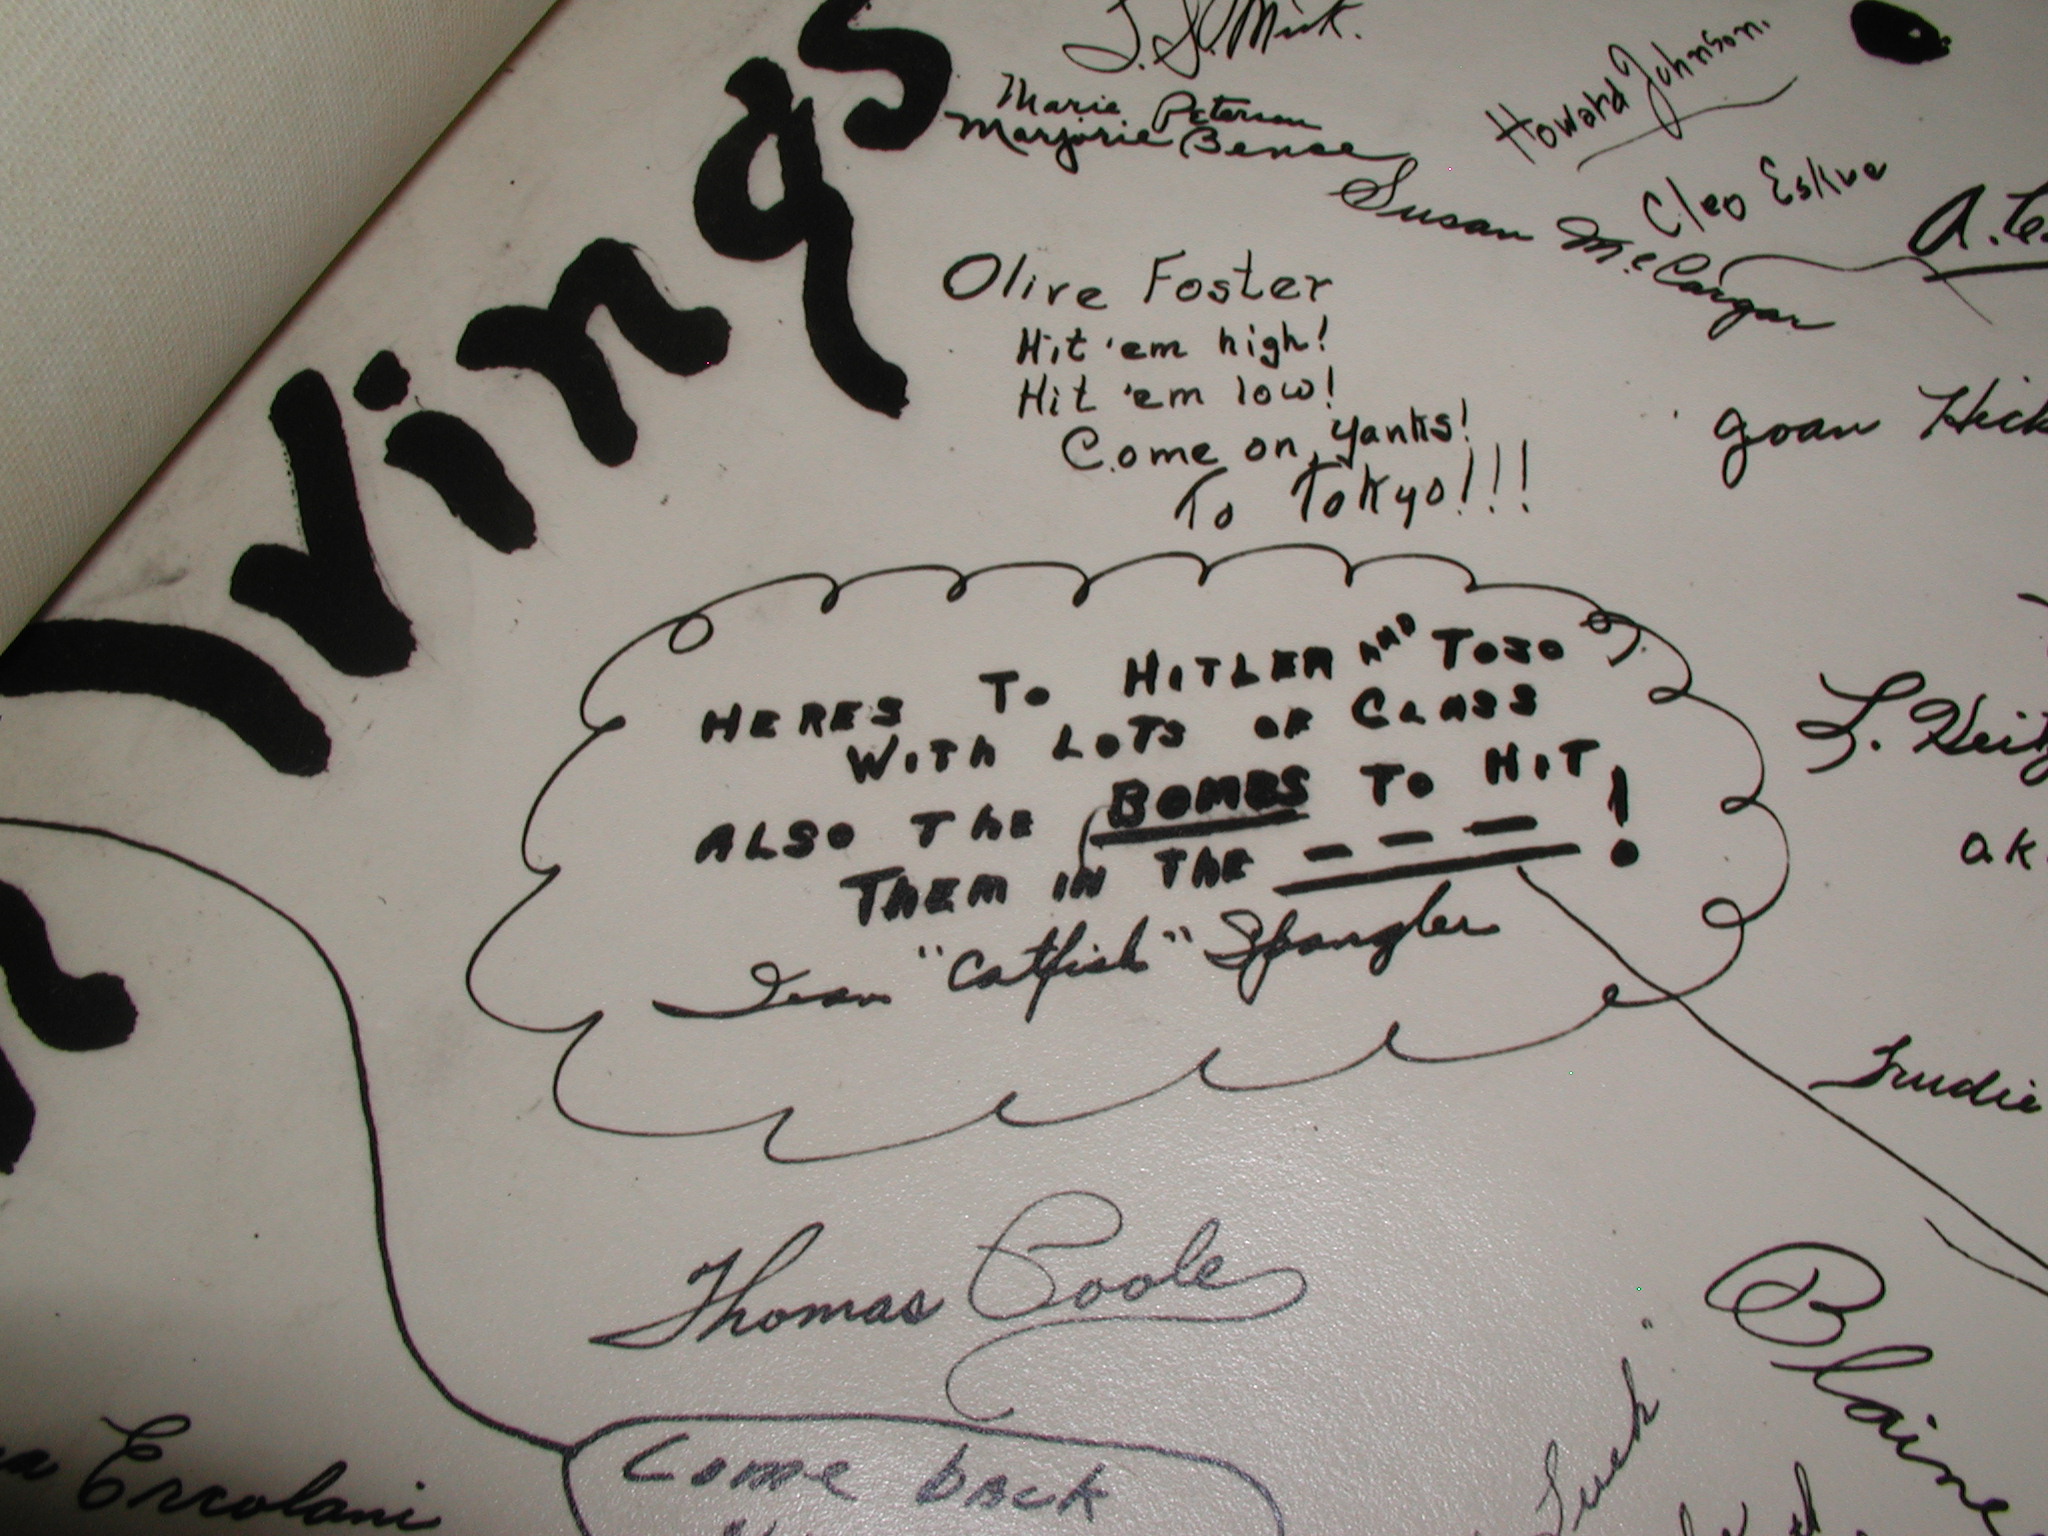 Wings
J. H. Mink.
Marie Peterson
Marjorie Bence
Howard Johnson.
Susan McCargar
Cleo
A.
Olive Foster
Hit 'em high!
Hit 'em low!
Come on, Yanks!
To Tokyo!!!
Joan Hick
HERES TO HITLER AND TOJO
WITH LOTS OF CLASS
ALSO THE BOMBS TO HIT
THEM IN THE _ _ _ !
"Catfish" Spangler
L. Heitz
a.k.
Trudie
Thomas Poole
Blaine
Luck
Ercolani
Come back